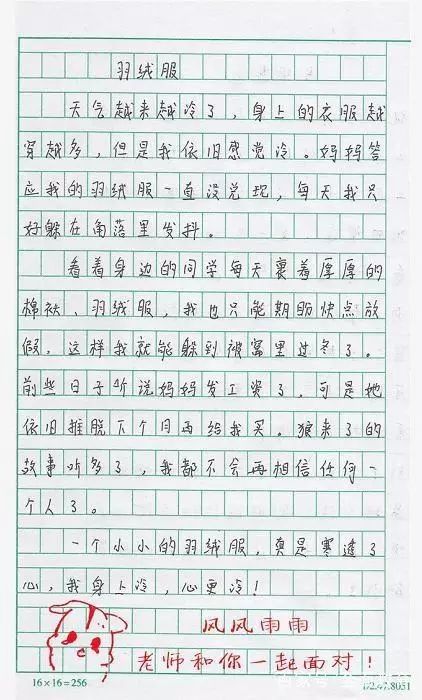 羽绒服
天气越来越冷了，身上的衣服越
穿越多，但是我依旧感觉冷。妈妈答
应我的羽绒服一直没兑现，每天我只
好躲在角落里发抖。
看着身边的同学每天裹着厚厚的
棉袄、羽绒服，我也只能期盼快点放
假，这样我就能躲到被窝里过冬了。
前些日子听说妈妈发工资了，可是她
依旧推脱下个月再给我买。狼来了的
故事听多了，我都不会再相信任何一
个人了。
一个小小的羽绒服，真是寒透了
心，我身上冷，心更冷！
风风雨雨
老师和你一起面对！
16×16=256